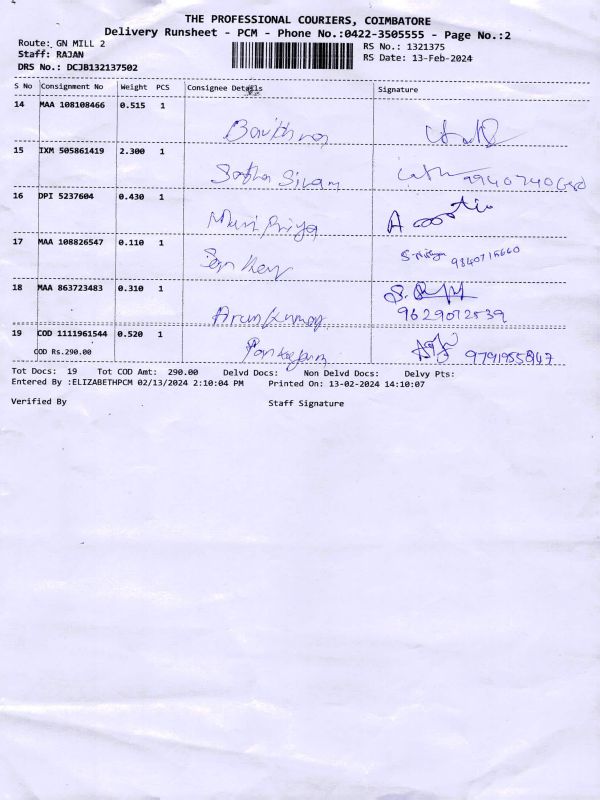 THE PROFESSIONAL COURIERS, COIMBATORE
Delivery Runsheet - PCM - Phone No.:0422-3505555 - Page No.:2
Route: GN MILL 2
Staff: RAJAN
DRS No.: DCJB132137502
RS No.: 1321375
RS Date: 13-Feb-2024
S No Consignment No Weight PCS Consignee Details Signature
14 MAA 108108466 0.515 1
15 IXM 505861419 2.300 1
16 DPI 5237604 0.430 1
Mani Priya
17 MAA 108826547 0.110 1
18 MAA 863723483 0.310 1
Arun Kumar 9629012539
19 COD 1111961544 0.520 1
COD Rs.290.00 9791955847
Tot Docs: 19 Tot COD Amt: 290.00 Delvd Docs: Non Delvd Docs: Delvy Pts:
Entered By :ELIZABETHPCM 02/13/2024 2:10:04 PM Printed On: 13-02-2024 14:10:07
Verified By Staff Signature